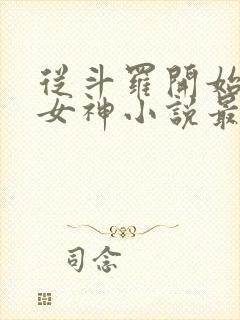 從斗羅開始
女神小說最
司念